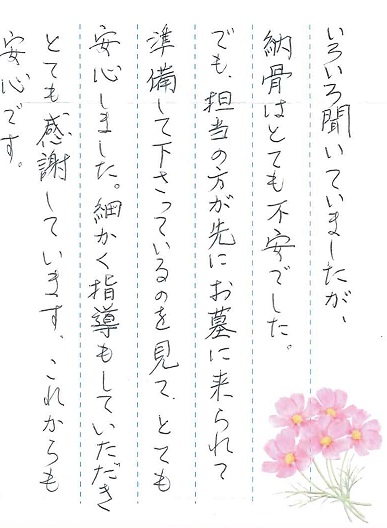 いろいろ聞いていましたが、
納骨はとても不安でした。
でも、担当の方が先にお墓に来られて
準備して下さっているのを見て、とても
安心しました。細かく指導もしていただき
とても感謝しています。これからも
安心です。